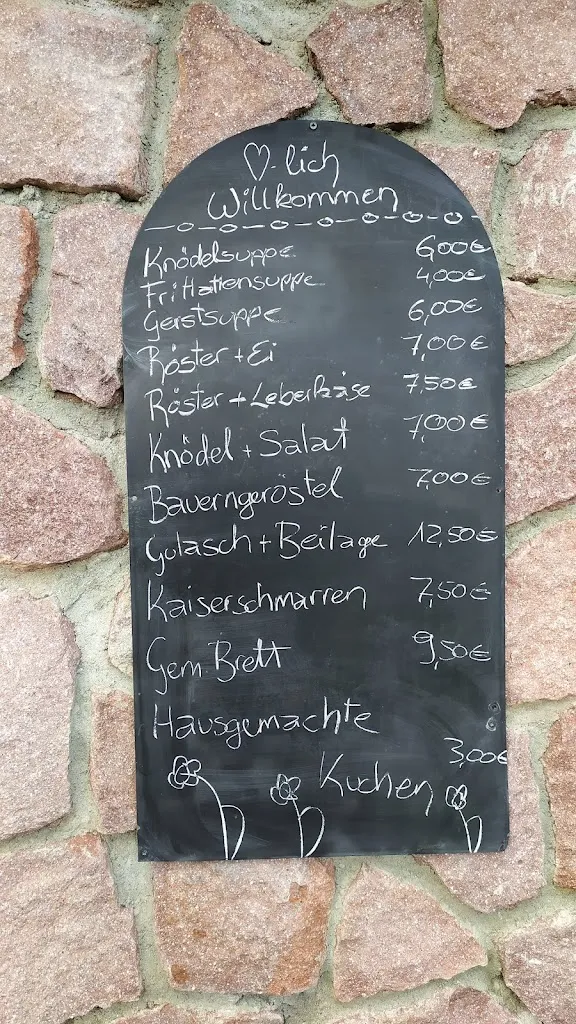 ♡-lich
Willkommen
Knödelsuppe 6,00€
Frittatensuppe 4,00€
Gerstsuppe 6,00€
Röster + Ei 7,00€
Röster + Leberkäse 7,50€
Knödel + Salat 7,00€
Bauerngeröstel 7,00€
Gulasch + Beilage 12,50€
Kaiserschmarren 7,50€
Gem. Brett 9,50€
Hausgemachte
Kuchen 3,00€